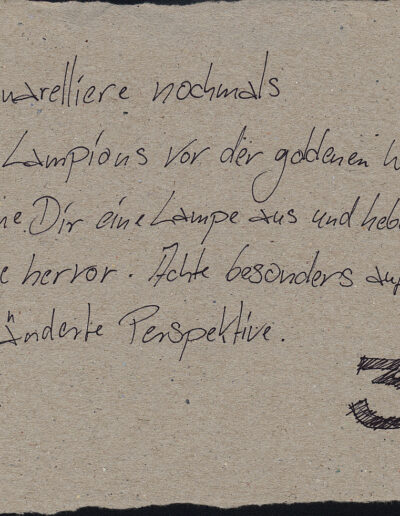 uarelliere nochmals
Lampions vor der goldenen W
ne Dir eine Lampe aus und heb
e hervor. Achte besonders auf
änderte Perspektive.
3